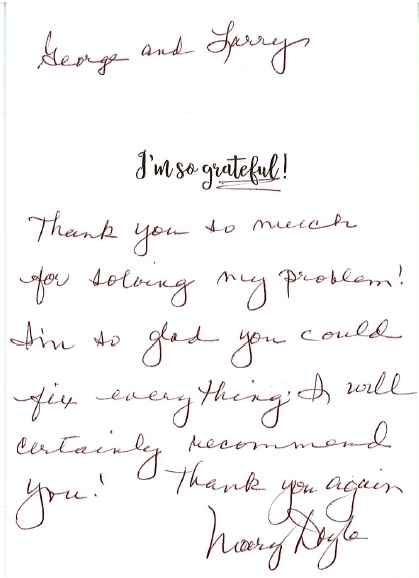 George and Larry
I'm so grateful!
Thank you so much
for solving my problem!
I'm so glad you could
fix everything. I will
certainly recommend
you! Thank you again
Mary Doyle